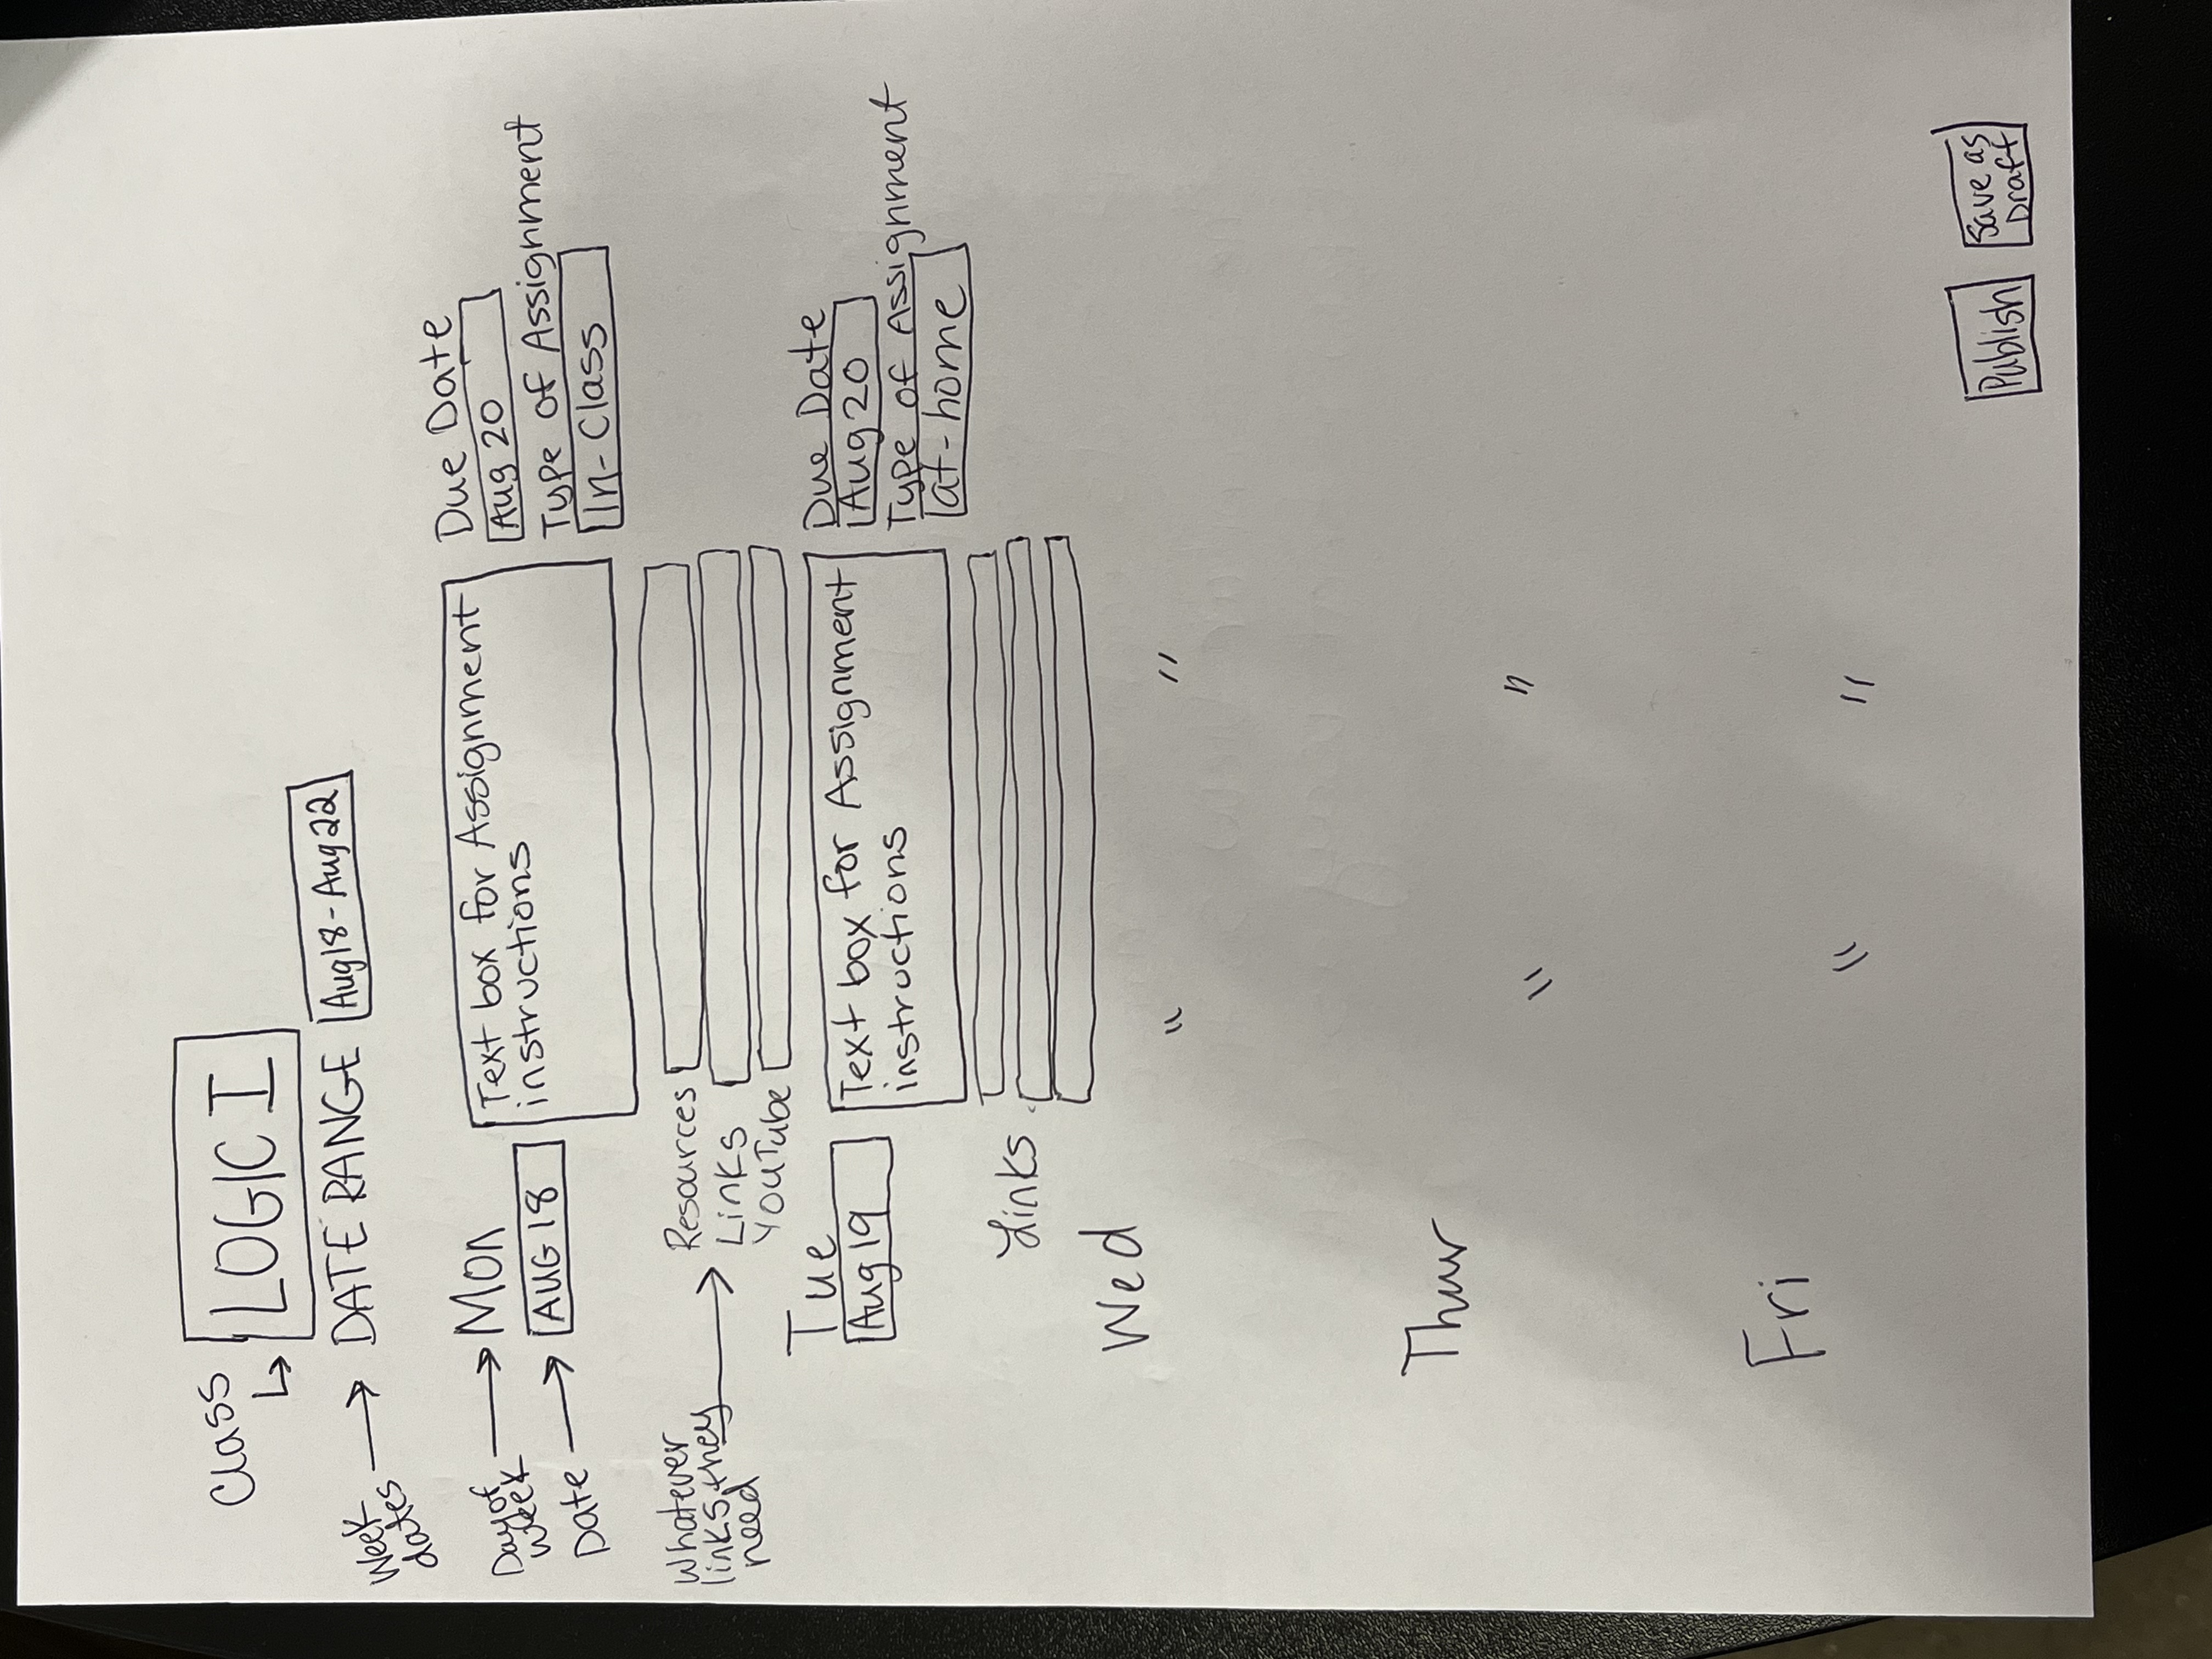 Class
↳ LOGIC I
Week dates → DATE RANGE Aug18-Aug22
Day of Week → Mon
Date → AUG 18
Text box for Assignment
instructions
Due Date
Aug 20
Type of Assignment
In-Class
Whatever
links they → 
need
Resources
Links
YouTube
Tue
Aug 19
Text box for Assignment
instructions
Due Date
Aug 20
Type of Assignment
at-home
Links
Wed " "
Thur " "
Fri " "
Publish Save as
Draft